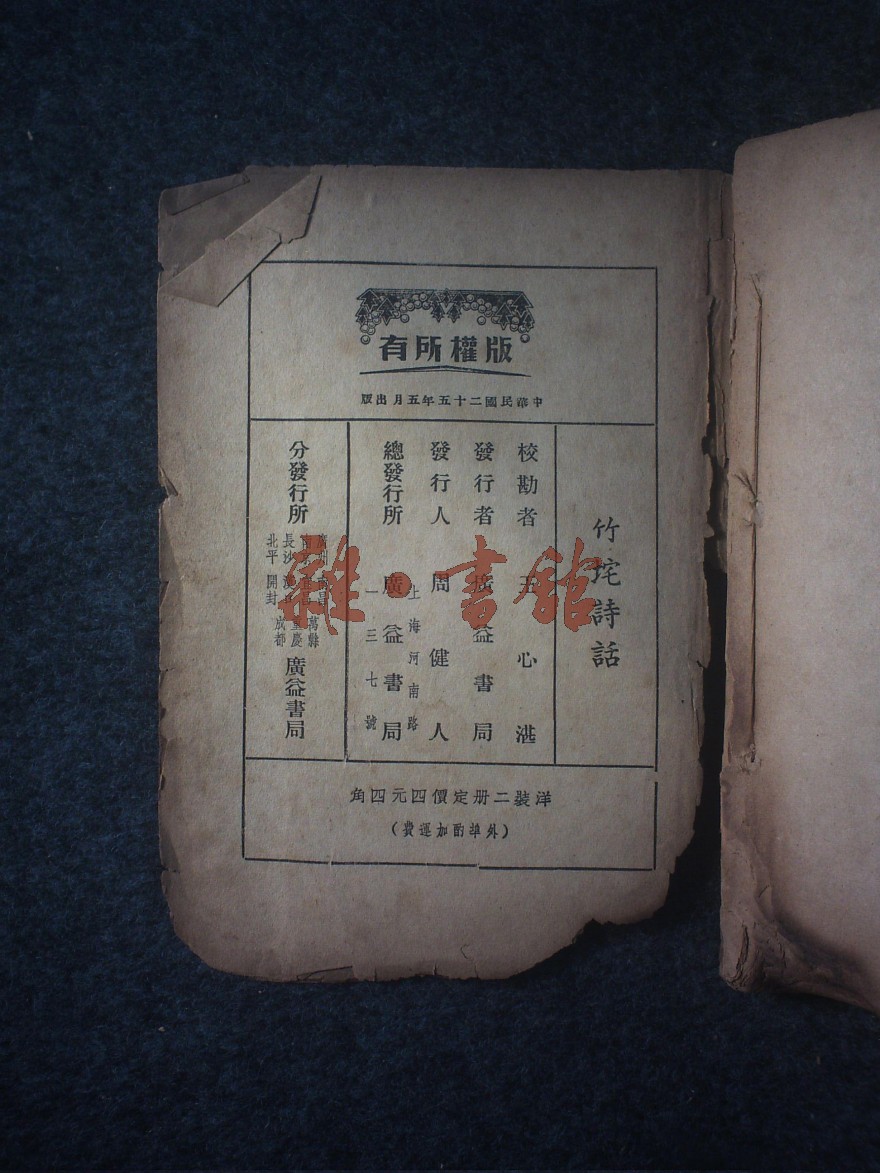 版權所有
中華民國二十五年五月出版
竹垞詩話
校勘者 王心湛
發行者 廣益書局
發行人 周健人
總發行所 廣益書局
上海河南路
一三七號
分發行所
廣州 南昌 萬縣
南京 宜昌 重慶
長沙 成都
北平 開封
廣益書局
洋裝二册定價四元四角
(外埠酌加運費)
雜·書館